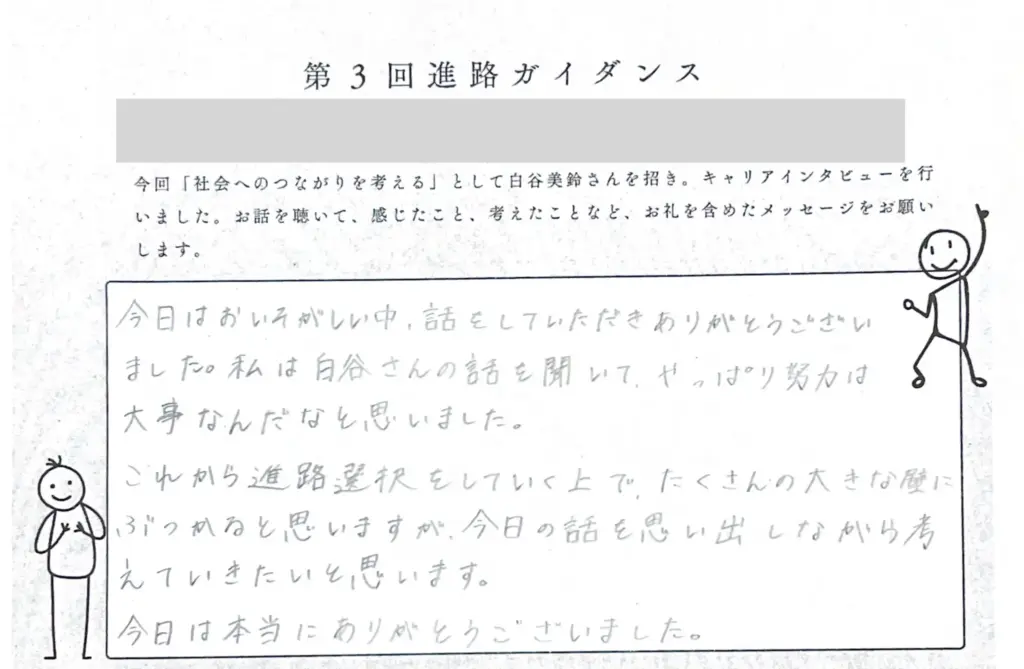 第3回進路ガイダンス
今回「社会へのつながりを考える」として白谷美鈴さんを招き。キャリアインタビューを行
いました。お話を聴いて、感じたこと、考えたことなど、お礼を含めたメッセージをお願い
します。
今日はおいそがしい中、話をしていただきありがとうござい
ました。私は白谷さんの話を聞いて、やっぱり努力は
大事なんだなと思いました。
これから進路選択をしていく上で、たくさんの大きな壁に
ぶつかると思いますが、今日の話を思い出しながら考
えていきたいと思います。
今日は本当にありがとうございました。